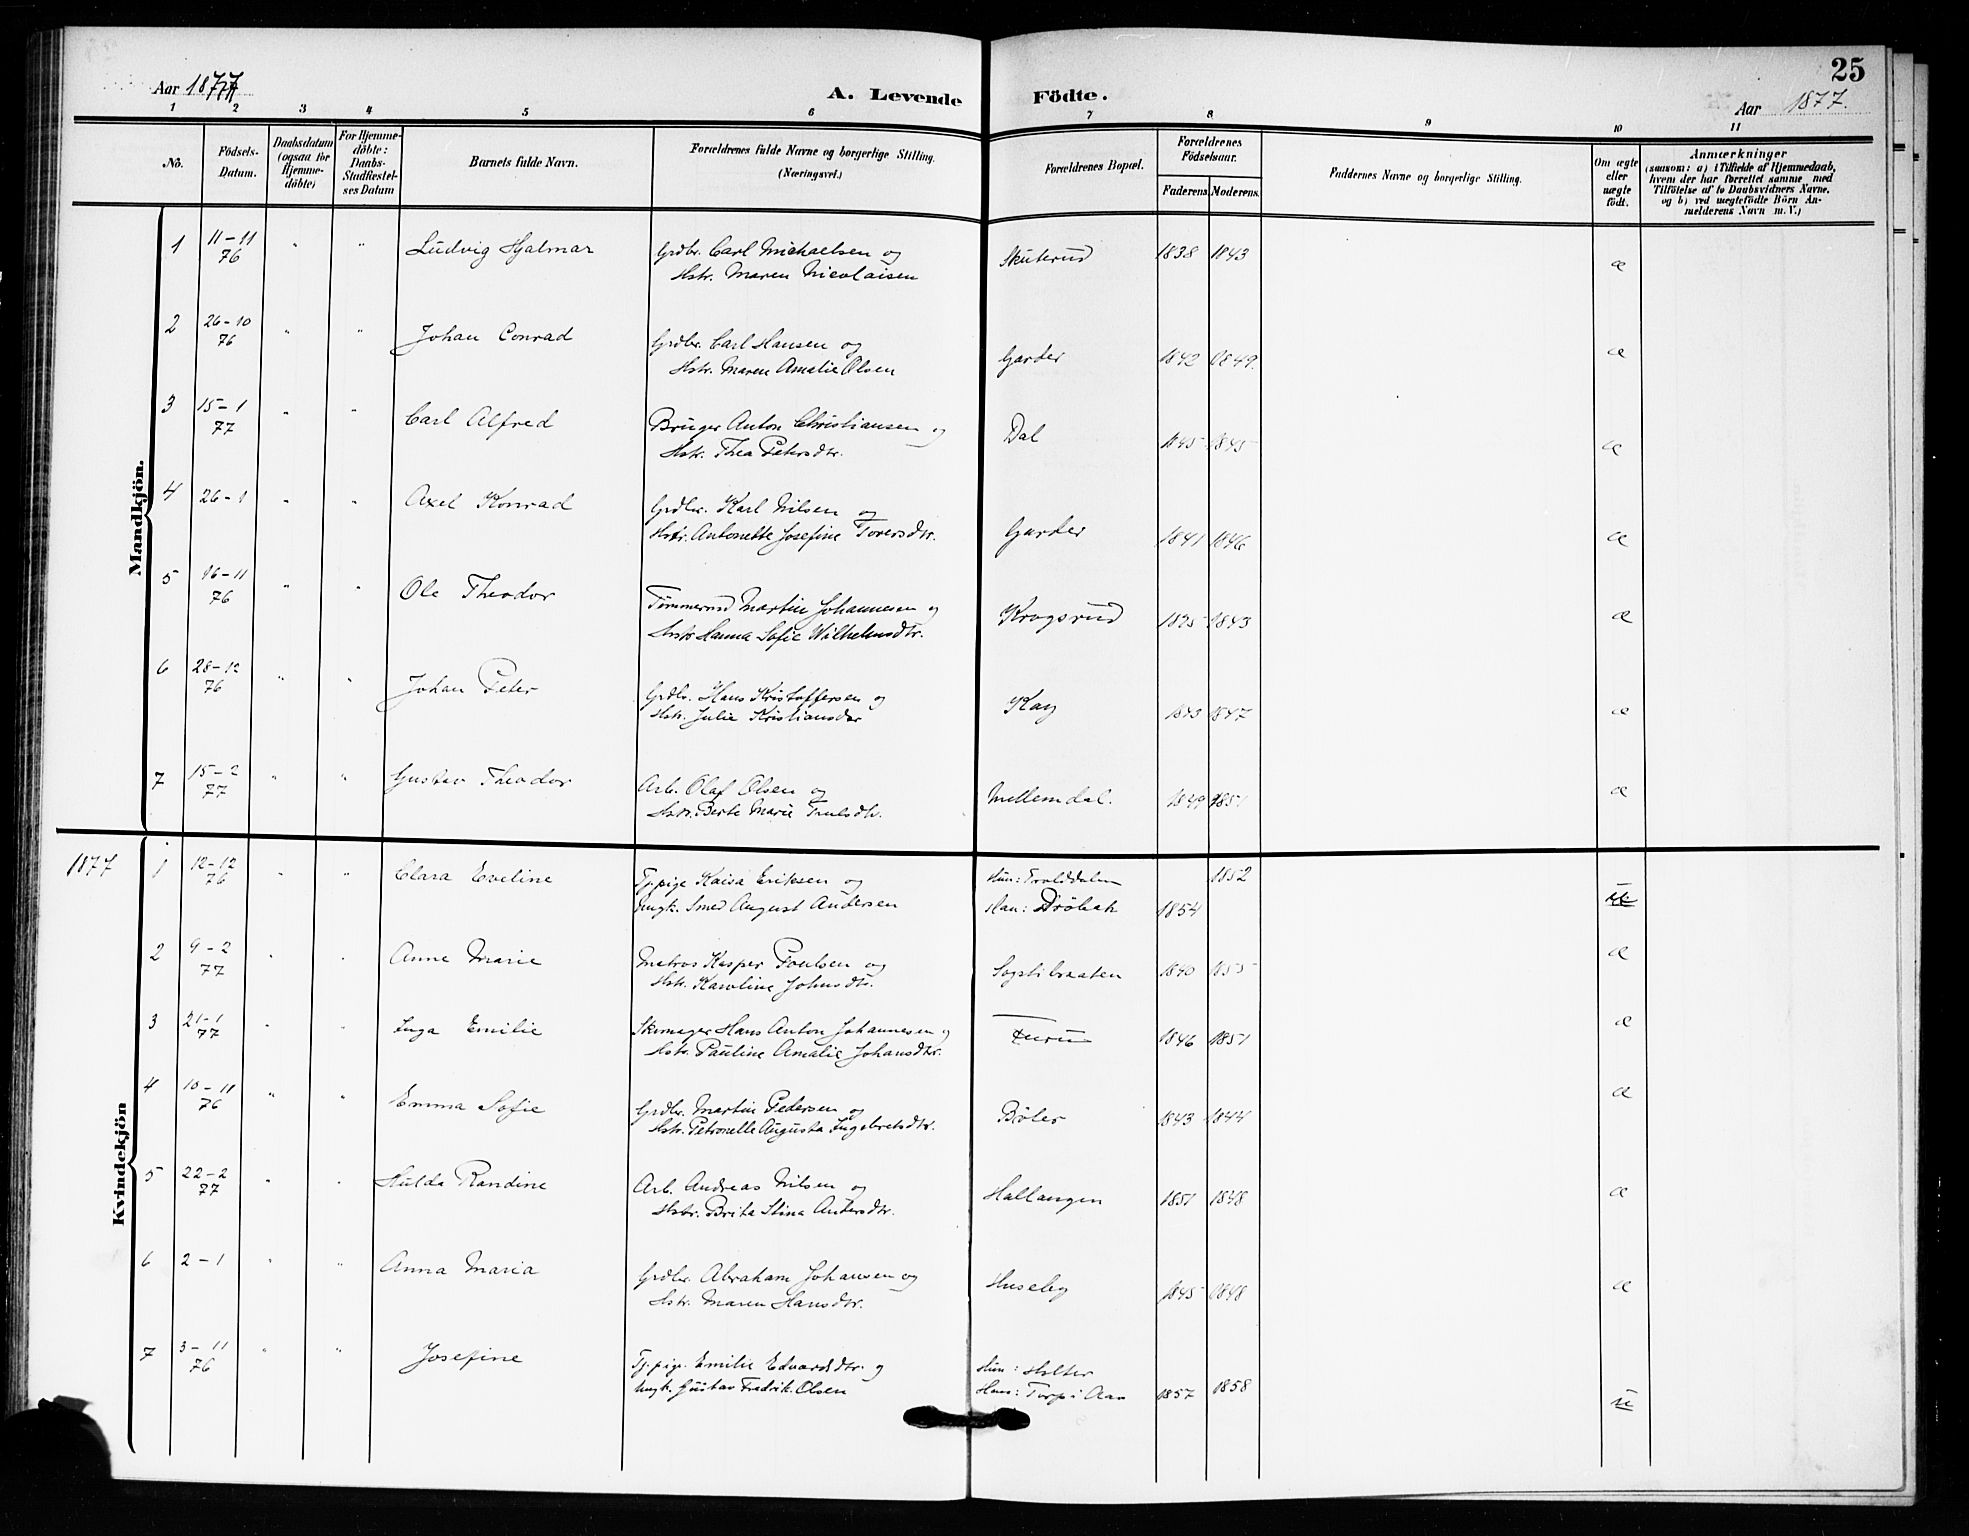 25
Aar 1877
A. Levende Födte.
Aar 1877.
1 2 3 4 5 6 7 8 9 10 11
No.
Födsels-Datum.
Daabsdatum (ogsaa för Hjemme-döbte)
For Hjemme-döbte: Daabs-Stadfæstel-ses Datum
Barnets fulde Navn.
Forældrenes fulde Navne og borgerlige Stilling.
(Næringsvei.)
Forældrenes Bopæl.
Forældrenes Födselsaar.
Faderens Moderens
Faddernes Navne og borgerlige Stilling.
Om ægte eller uægte födt.
Anmærkninger
(saasom: a) i Tilfælde af Hjemmedaab,
hvem der har forrettet samme med
Tilföielse af to Daabsvidners Navne.
og b) ved uægtefödte Börn An-
melderens Navn m. V.)
Mandkjön.
1 11-11 76 " " Ludvig Hjalmar Grdbr. Carl Michaelsen og Skuterud 1838 1843 æ
Hstr. Maren Nicolaisen
2 26-10 76 " " Johan Conrad Grdbr. Carl Hansen og Garder 1842 1849. æ
Hstr. Maren Amalie Olsen
3 15-1 77 " " Carl Alfred Bruger Anton Christiansen og Dal 1845 1845 æ
Hstr. Thea Petersdtr.
4 26-1 " " Axel Konrad Grdbr. Karl Nilsen og Garder 1841 1846 æ
Hstr. Antonette Josefine Toversdtr.
5 16-11 76 " " Ole Theodor Tømmermd Martin Johannesen og Krogsrud 1843 æ
Hstr Hanna Sofie Wilhelmsdtr.
6 28-12 76 " " Johan Peter Grdbr. Hans Kristoffersen og Kay 1847 æ
Hstr. Julie Kristiansdtr
7 15-2 77 " " Gustav Theodor Arb. Olaf Olsen og Mellemdal. 1849 1851 æ
Hstr. Berte Marie Trulsdtr.
1877
Kvindekjön
1 12-12 76 " " Clara Eveline Tj.pige Kaisa Eriksen og Hun: Trolddalen 1852 u
Ungk. Smed August Andersen Han: Drøbak 1854
2 9-2 77 " " Anne Marie Matros Kasper Poulsen og Sogstibraaten 1840 1855 æ
Hstr. Karoline Johnsdtr.
3 21-1 77 " " Inga Emilie Skomager Hans Anton Johannesen og 1846 1851 æ
Hstr. Pauline Amalie Johansdtr.
4 10-11 76 " " Emma Sofie Grdbr. Martin Pedersen og Bøler 1843 1844 æ
Hstr. Petronelle Augusta Ingebretsdtr.
5 22-2 77 " " Hulda Randine Arb. Andreas Nilsen og Hallangen 1851 1848 æ
Hstr. Brita Stina Andersdtr.
6 2-1 " " Anna Maria Grdbr. Abraham Johansen og Huseby 1845 1848 æ
Hstr. Maren Hansdtr.
7 3-11 76 " " Josefine Tj.pige. Emilie Edvardsdtr. og Hun: Holter 1858 u
Ungk. Gustav Fredrik Olsen Han: Torp i Aas 1857